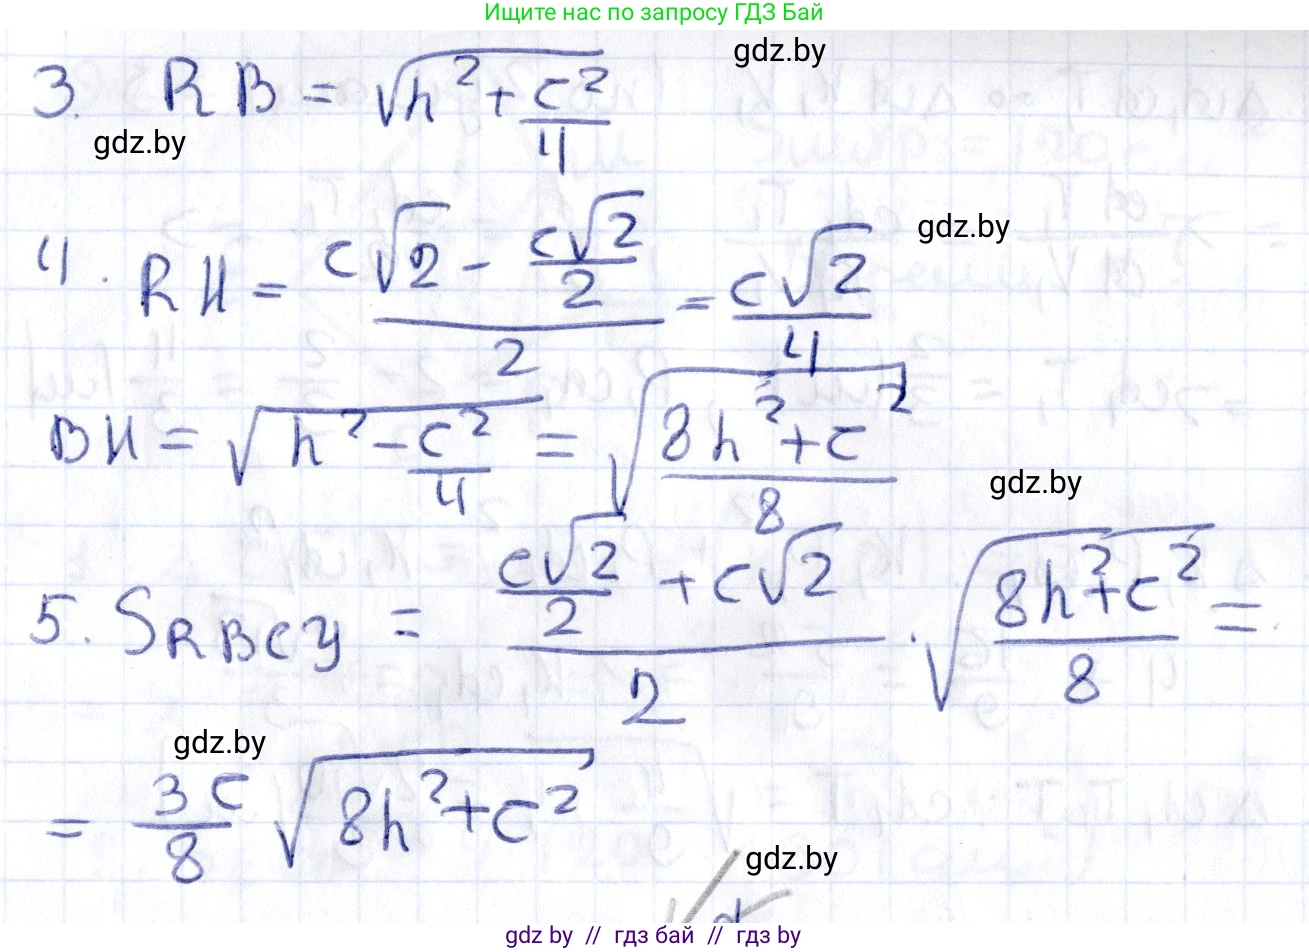 Ищите нас по запросу ГДЗ Бай
gdz.by
3. RB = √(h² + c²/4)
gdz.by
gdz.by
4. RH = (c√2 - c√2/2)/2 = c√2/4
BH = √(h² - c²/4) = √((8h² + c²)/8)
gdz.by
5. S RBCY = (c√2/2 + c√2)/2 · √((8h² + c²)/8) =
gdz.by
= 3c/8 √(8h² + c²)
gdz.by
gdz by // гдз бай // гдз by